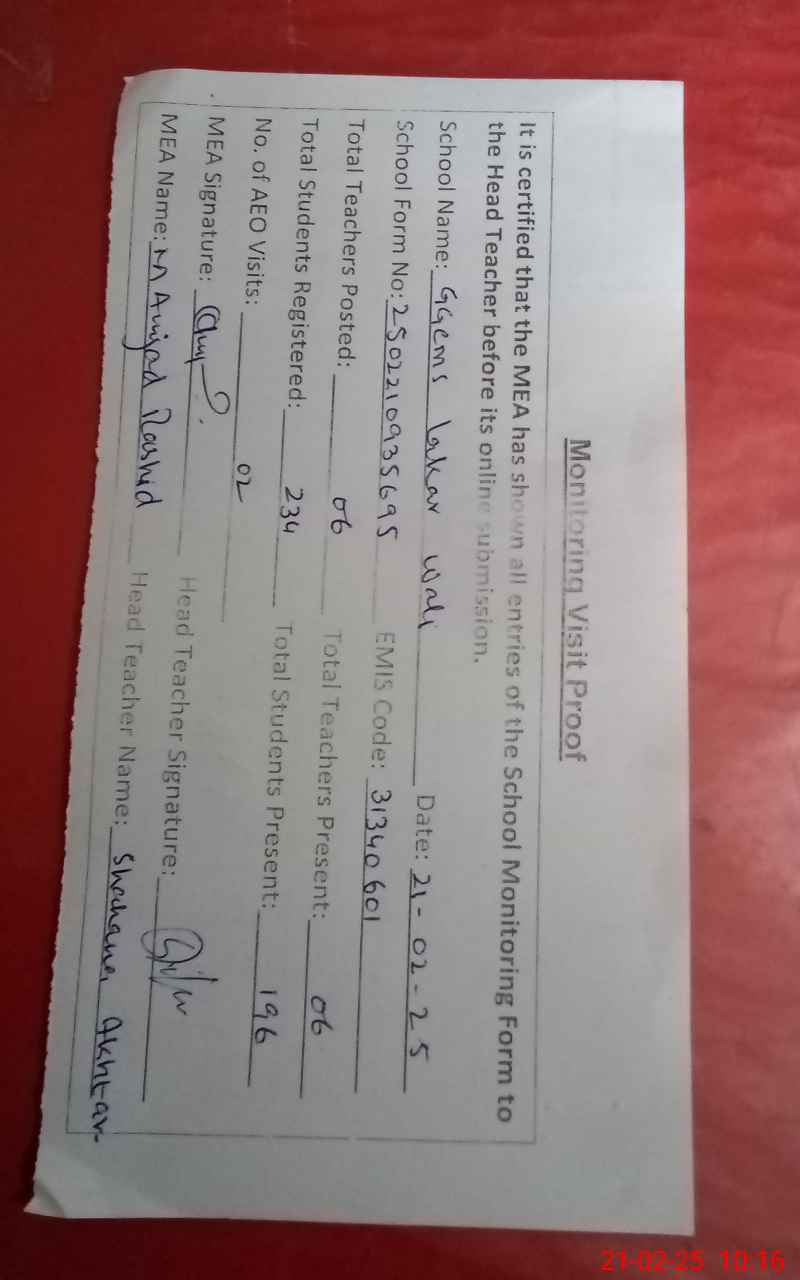 Monitoring Visit Proof
It is certified that the MEA has shown all entries of the School Monitoring Form to
the Head Teacher before its online submission.
School Name: GGEMS Lakar Wali Date: 21-02-25
School Form No: 2502210935695 EMIS Code: 31340601
Total Teachers Posted: 06 Total Teachers Present: 06
Total Students Registered: 234 Total Students Present: 196
No. of AEO Visits: 02
MEA Signature: Head Teacher Signature:
MEA Name: M Amjad Rashid Head Teacher Name: Akhtar
21-02-25 10:16